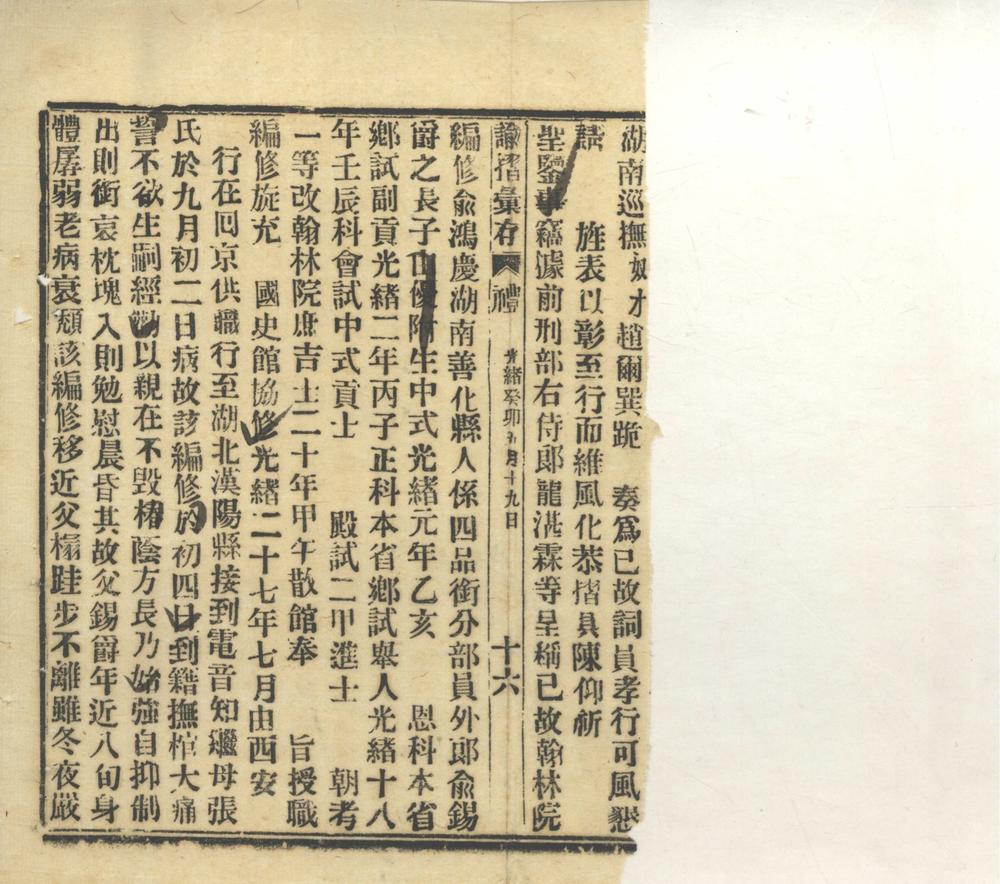 湖南巡撫奴才趙爾巽跪　奏爲已故詞員孝行可風懇
請　旌表以彰至行而維風化恭摺具陳仰祈
聖鑒事竊據前刑部右侍郎龍湛霖等呈稱已故翰林院
諭摺彙存　禮　光緒癸卯五月十九日　十六
編修俞鴻慶湖南善化縣人係四品銜分部員外郎俞錫
爵之長子由優附生中式光緒元年乙亥　恩科本省
鄉試副貢光緒二年丙子正科本省鄉試舉人光緒十八
年壬辰科會試中式貢士　殿試二甲進士　朝考
一等改翰林院庶吉士二十年甲午散館奉　旨授職
編修旋充　國史館協修光緒二十七年七月由西安
行在回京供職行至湖北漢陽縣接到電音知繼母張
氏於九月初二日病故該編修於初四日到籍撫棺大痛
誓不欲生嗣經勸以親在不毀椿蔭方長乃始強自抑制
出則銜哀枕塊入則勉慰晨昏其故父錫爵年近八旬身
體孱弱老病衰頹該編修移近父榻跬步不離雖冬夜嚴